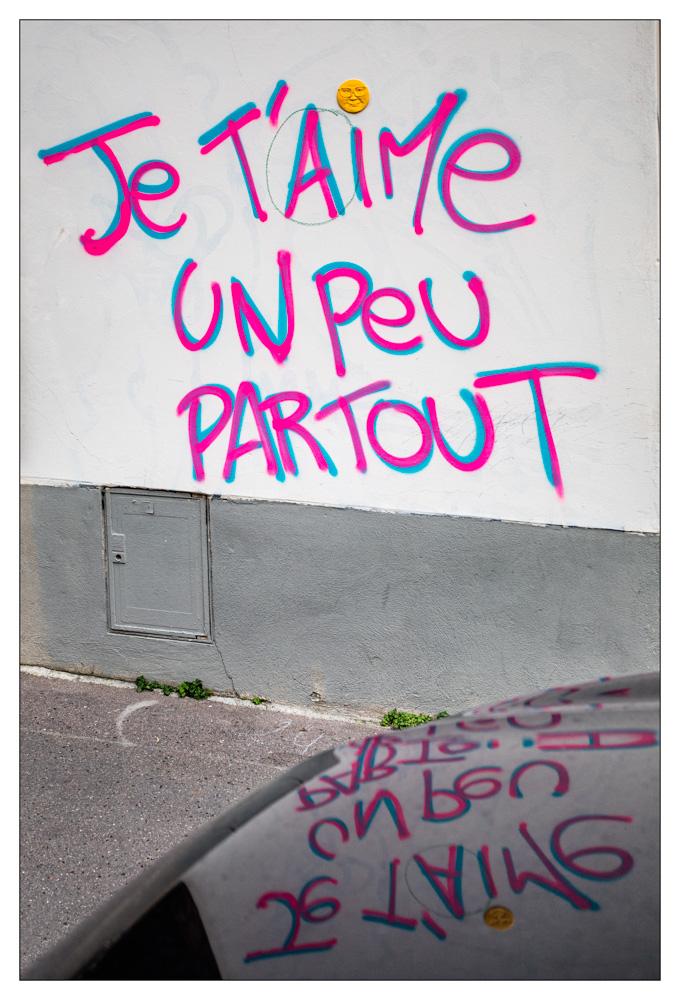 Je T'AiMe
UN Peu
PARTOUT